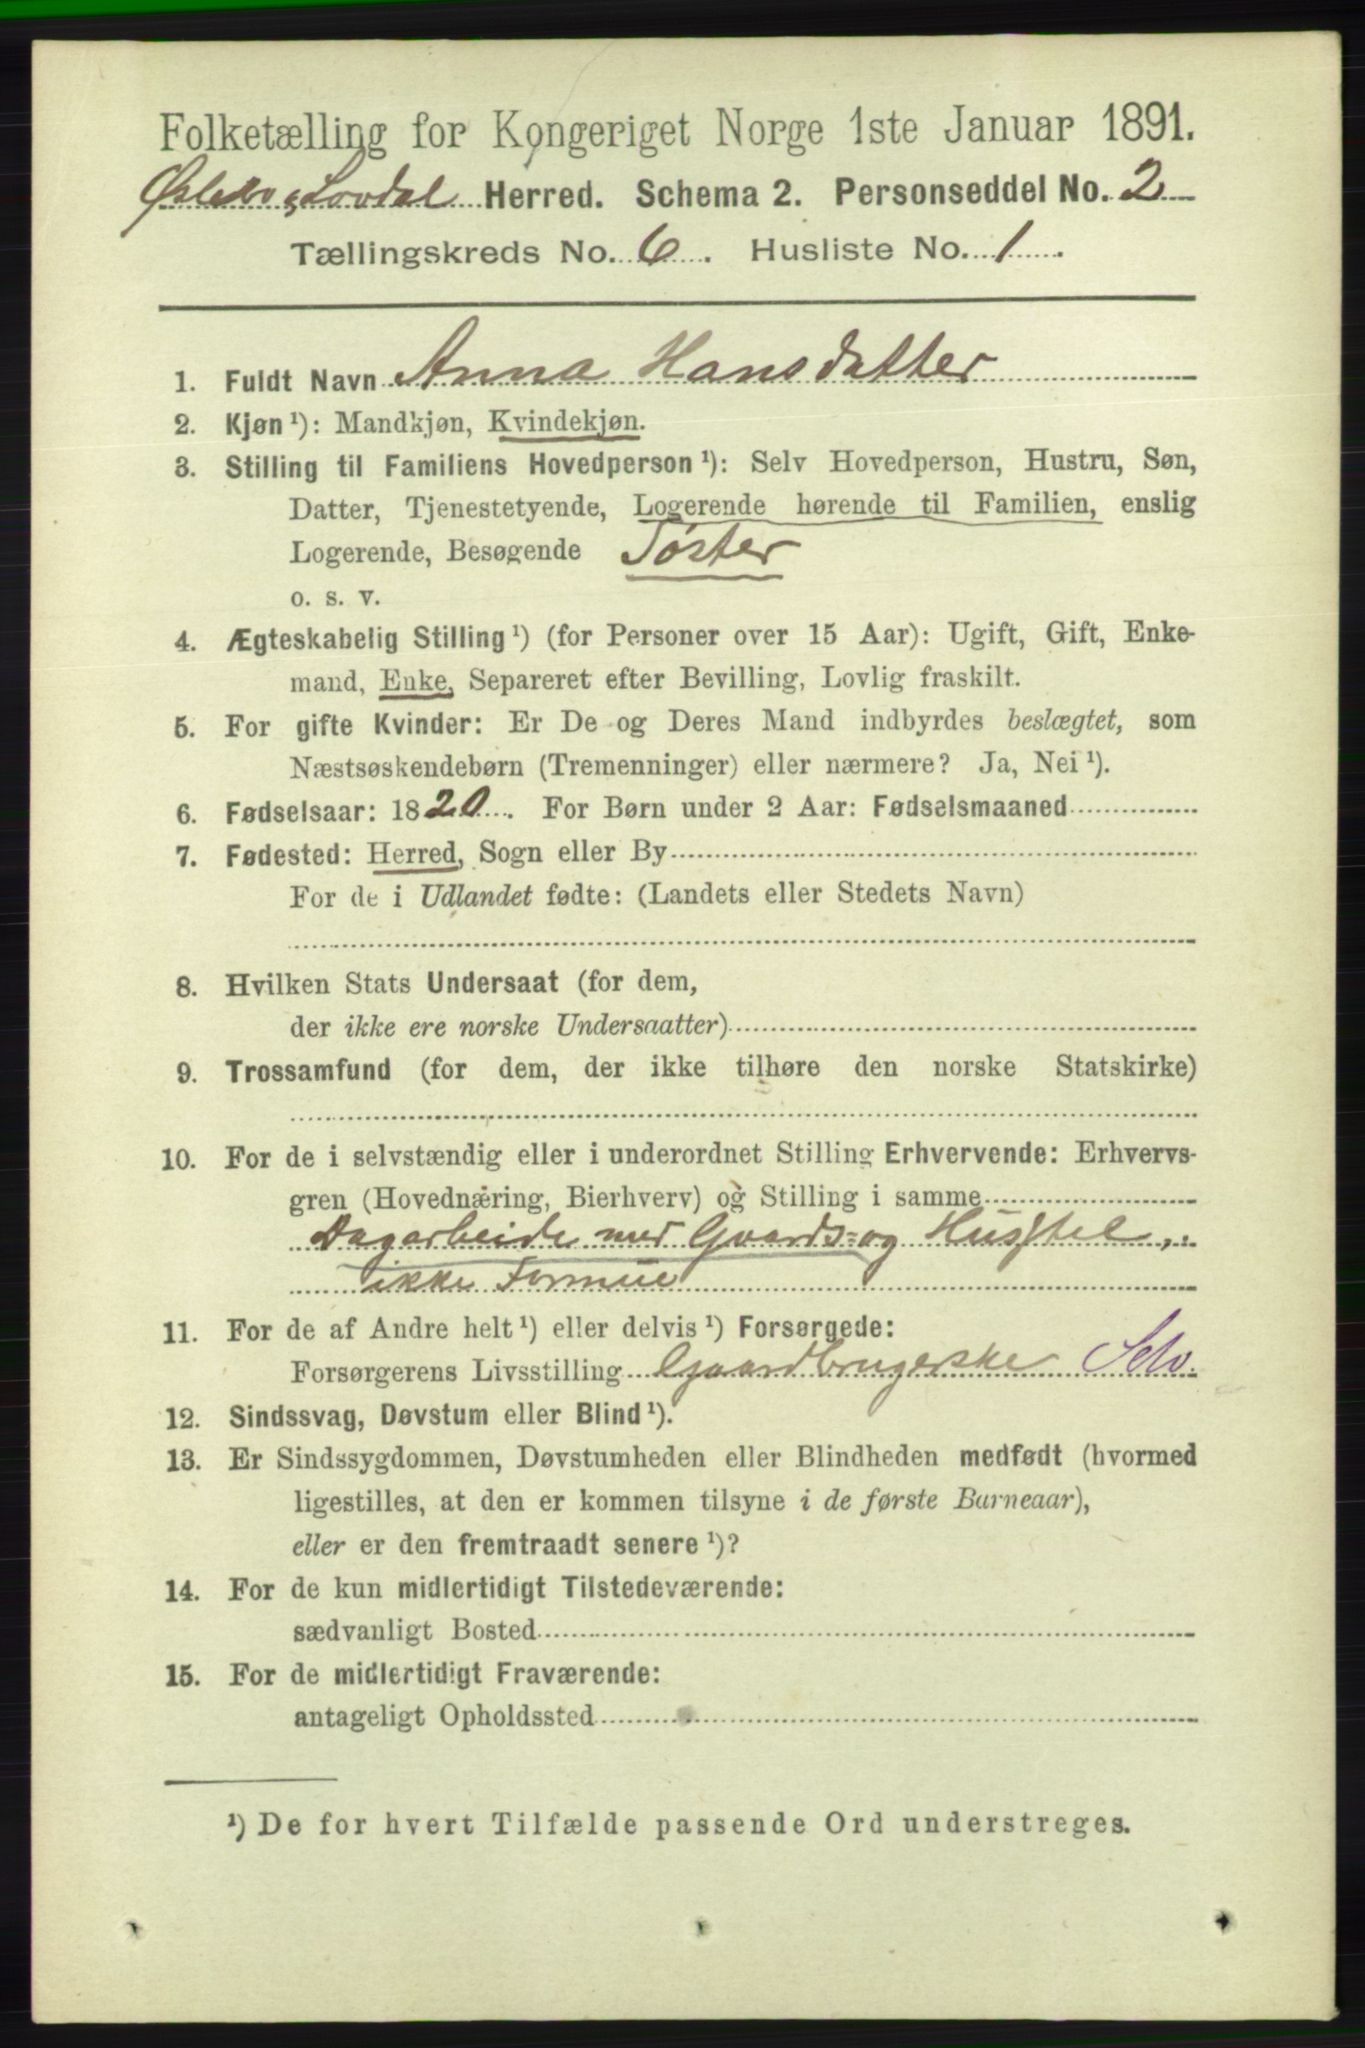 Folketælling for Kongeriget Norge 1ste Januar 1891.
Øslebø & Lovdal Herred. Schema 2. Personseddel No. 2
Tællingskreds No. 6. Husliste No. 1.
1. Fuldt Navn Anna Hansdatter
2. Kjøn ¹): Mandkjøn, Kvindekjøn.
3. Stilling til Familiens Hovedperson ¹): Selv Hovedperson, Hustru, Søn,
Datter, Tjenestetyende, Logerende hørende til Familien, enslig
Logerende, Besøgende Søster
o. s. v.
4. Ægteskabelig Stilling ¹) (for Personer over 15 Aar): Ugift, Gift, Enke-
mand, Enke, Separeret efter Bevilling, Lovlig fraskilt.
5. For gifte Kvinder: Er De og Deres Mand indbyrdes beslægtet, som
Næstsøskendebørn (Tremenninger) eller nærmere? Ja, Nei ¹).
6. Fødselsaar: 1820. For Børn under 2 Aar: Fødselsmaaned
7. Fødested: Herred, Sogn eller By
For de i Udlandet fødte: (Landets eller Stedets Navn)
8. Hvilken Stats Undersaat (for dem,
der ikke ere norske Undersaatter)
9. Trossamfund (for dem, der ikke tilhøre den norske Statskirke)
10. For de i selvstændig eller i underordnet Stilling Erhvervende: Erhvervs-
gren (Hovednæring, Bierhverv) og Stilling i samme
Dagarbeide med Gaards- og Husstel,
ikke Formue
11. For de af Andre helt ¹) eller delvis ¹) Forsørgede:
Forsørgerens Livsstilling Gaardbrugerske Selv.
12. Sindssvag, Døvstum eller Blind ¹).
13. Er Sindssygdommen, Døvstumheden eller Blindheden medfødt (hvormed
ligestilles, at den er kommen tilsyne i de første Barneaar),
eller er den fremtraadt senere ¹)?
14. For de kun midlertidigt Tilstedeværende:
sædvanligt Bosted
15. For de midlertidigt Fraværende:
antageligt Opholdssted
¹) De for hvert Tilfælde passende Ord understreges.